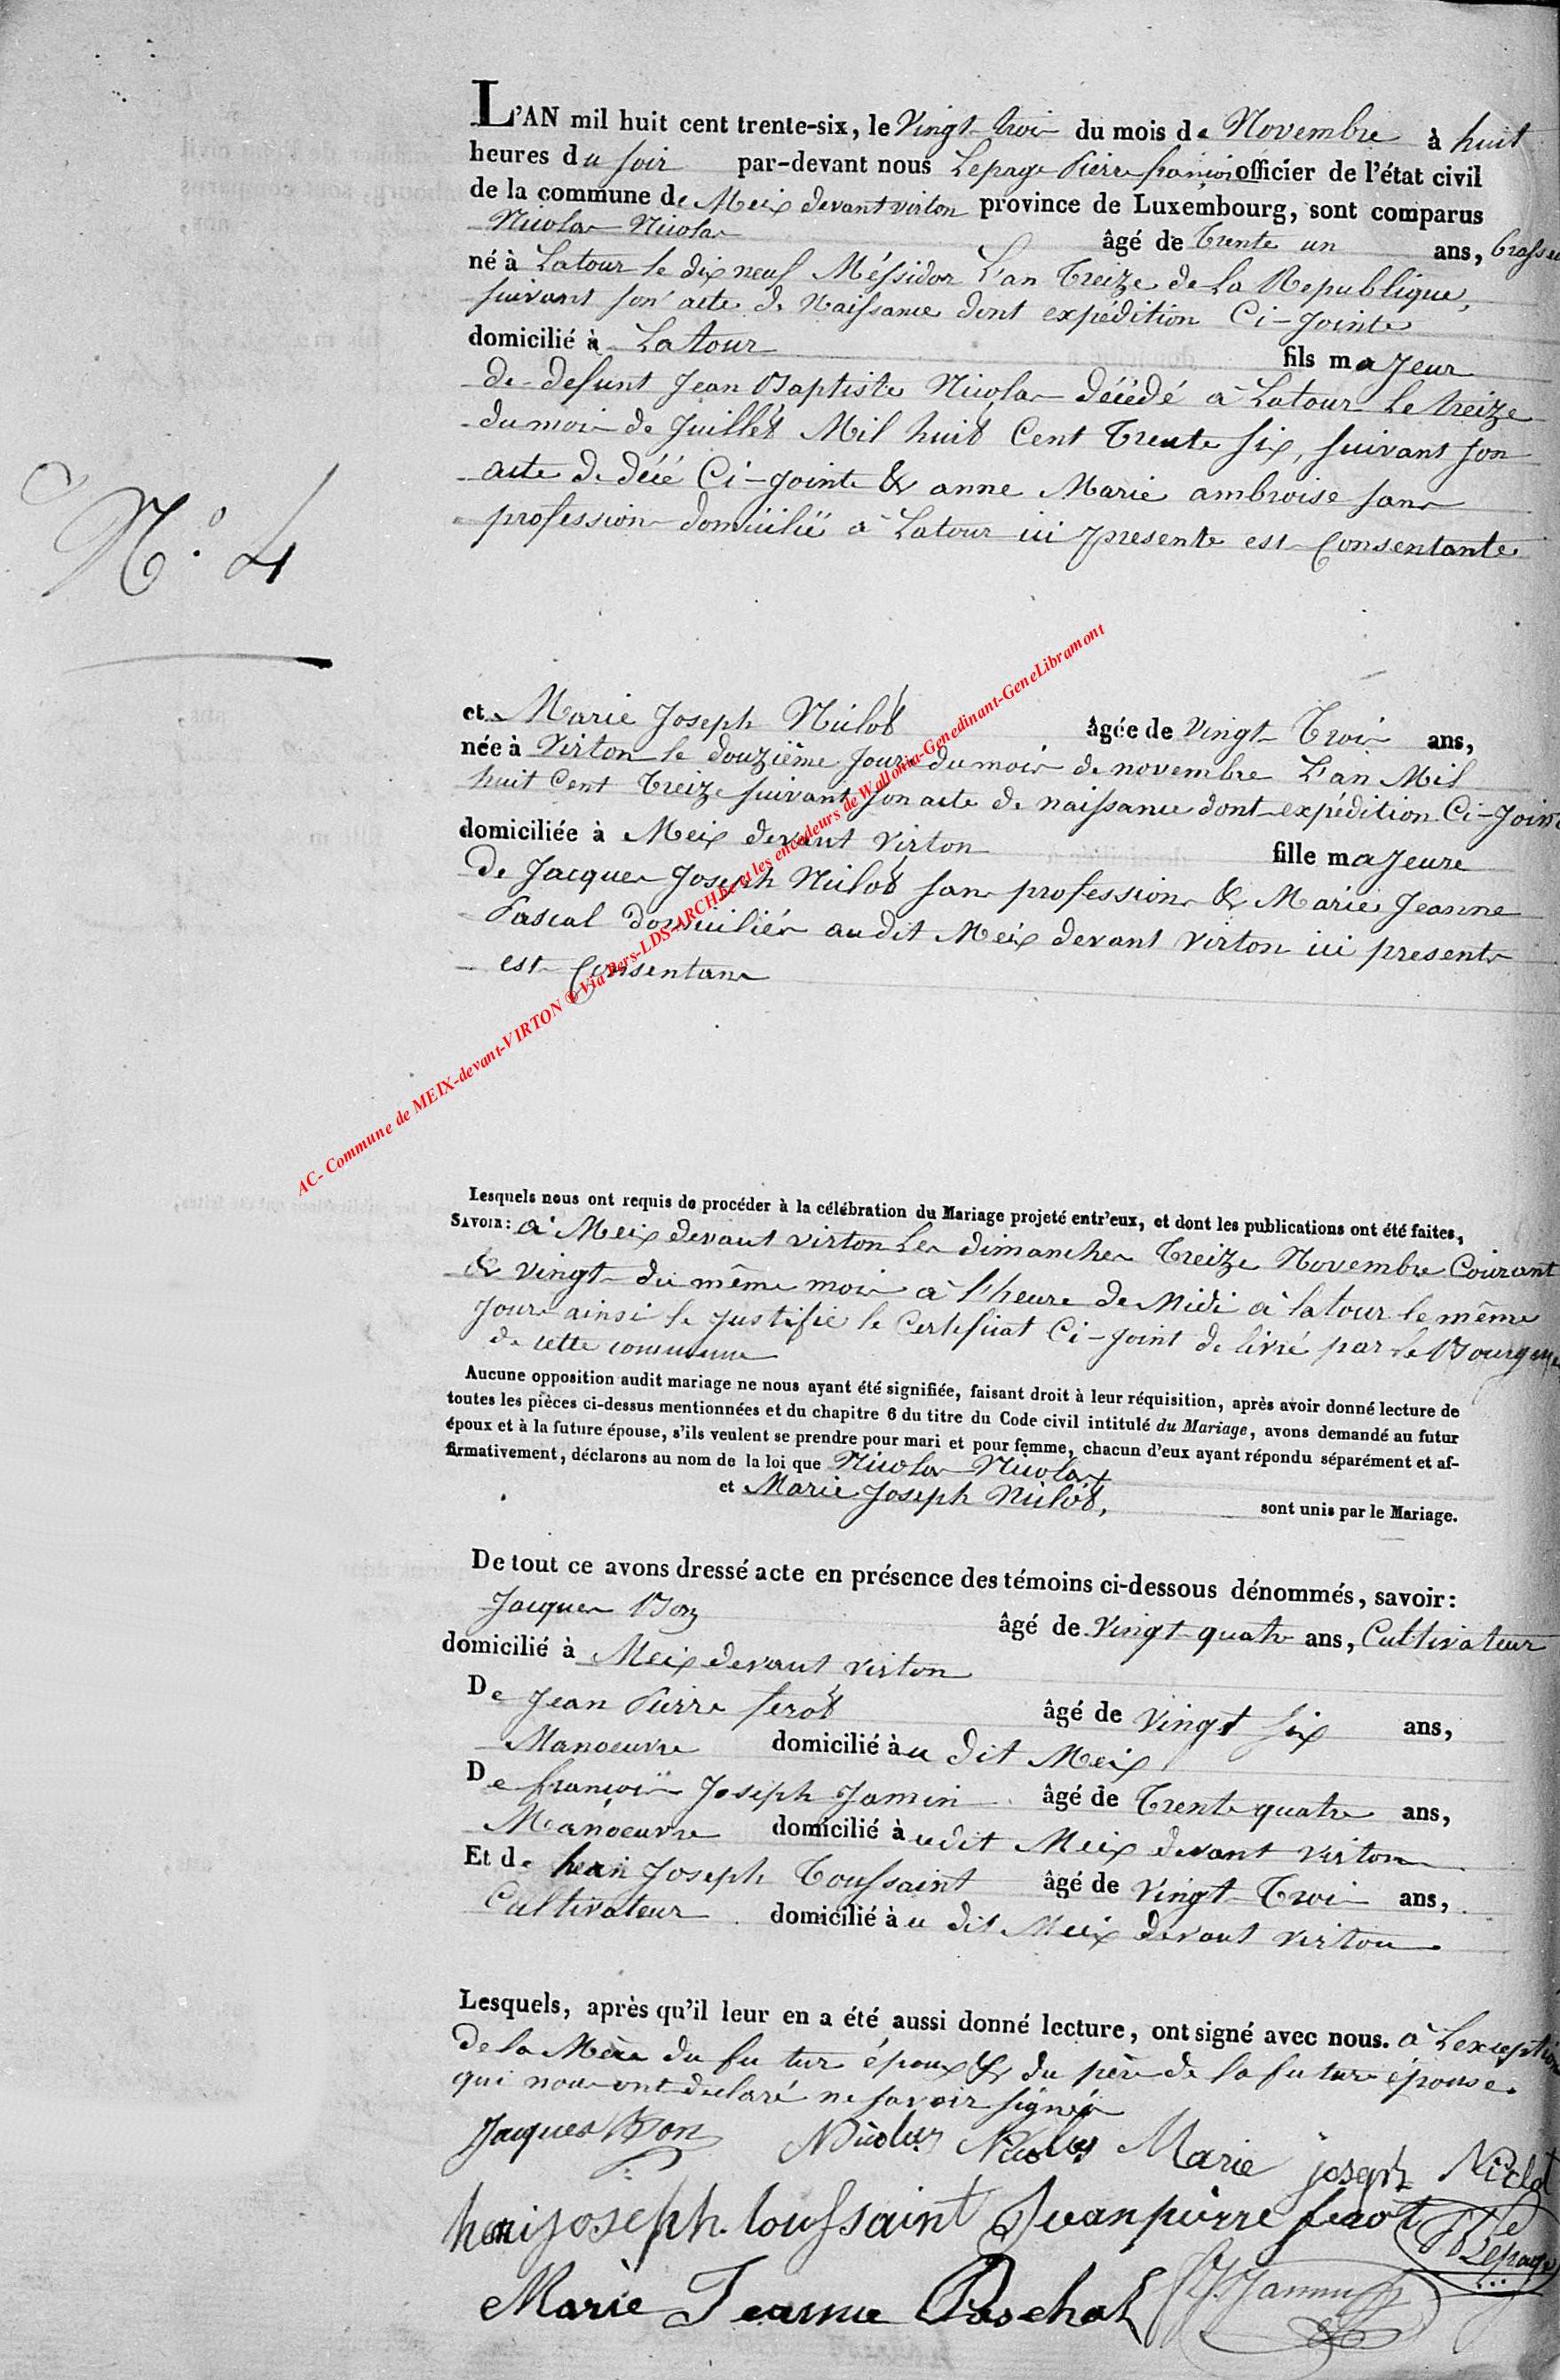 L'AN mil huit cent trente-six, le Vingt trois du mois de Novembre à huit
heures du soir par-devant nous Lepage Pierre françois officier de l'état civil
de la commune de Meix devant virton province de Luxembourg, sont comparus
Nicolas Nicolas âgé de Trente un ans, brasseur
né à Latour le dix neuf Méssidor L'an Treize de La Republique,
suivant son acte de Naissance dont expédition Ci-Jointe
domicilié à Latour fils majeur
de defunt Jean Baptiste Nicolas décédé à Latour Le treize
du mois de Juillet Mil huit Cent Trente six, suivant son
acte de décé Ci-Jointe & anne Marie ambroise sans
profession domiciliée à Latour ici presente est Consentante
N.° 4
et Marie Joseph Niclot âgée de Vingt Trois ans,
née à Virton le douzième Jour du mois de novembre L'an Mil
huit Cent Treize suivant son acte de naissance dont expédition Ci-Joint
domiciliée à Meix devant Virton fille majeure
de Jacques Joseph Niclot sans profession & Marie Jeanne
Pascal domiciliés audit Meix devant Virton ici presents
est Consentans
AC- Commune de MEIX-devant-VIRTON ® Via Pers-LDS-ARCHbe et les encodeurs de Wallonia-Genedinant-GeneLibramont
Lesquels nous ont requis de procéder à la célébration du Mariage projeté entr'eux, et dont les publications ont été faites,
SAVOIR: à Meix devant virton Les dimanches Treize Novembre Courant
& vingt du même mois à l'heure de Midi à latour le même
Jour ainsi le Justifie le Certificat Ci-Joint de livré par le Bourgme
de cette commune
Aucune opposition audit mariage ne nous ayant été signifiée, faisant droit à leur réquisition, après avoir donné lecture de
toutes les pièces ci-dessus mentionnées et du chapitre 6 du titre du Code civil intitulé du Mariage, avons demandé au futur
époux et à la future épouse, s'ils veulent se prendre pour mari et pour femme, chacun d'eux ayant répondu séparément et af-
firmativement, déclarons au nom de la loi que Nicolas Nicolas
et Marie Joseph Niclot, sont unis par le Mariage.
De tout ce avons dressé acte en présence des témoins ci-dessous dénommés, savoir:
Jacques Bon âgé de Vingt quatre ans, Cultivateur
domicilié à Meix devant virton
De Jean Pierre ferot âgé de Vingt six ans,
Manoeuvre domicilié à u dit Meix
De françois Joseph Jamin âgé de Trente quatre ans,
Manoeuvre domicilié à udit Meix devant virton
Et de henri Joseph Toussaint âgé de Vingt Trois ans,
Cultivateur domicilié à u dit Meix devant virton
Lesquels, après qu'il leur en a été aussi donné lecture, ont signé avec nous. à Lexception
de la Mère du fu tur époux & du père de la future épouse
qui nous ont declaré ne savoir signér
Jacques Bon Nicolas Nicolas Marie joseph Niclot
henri joseph toussaint Jean pierre ferot Lepage
Marie Jeanne Paschal Jamin